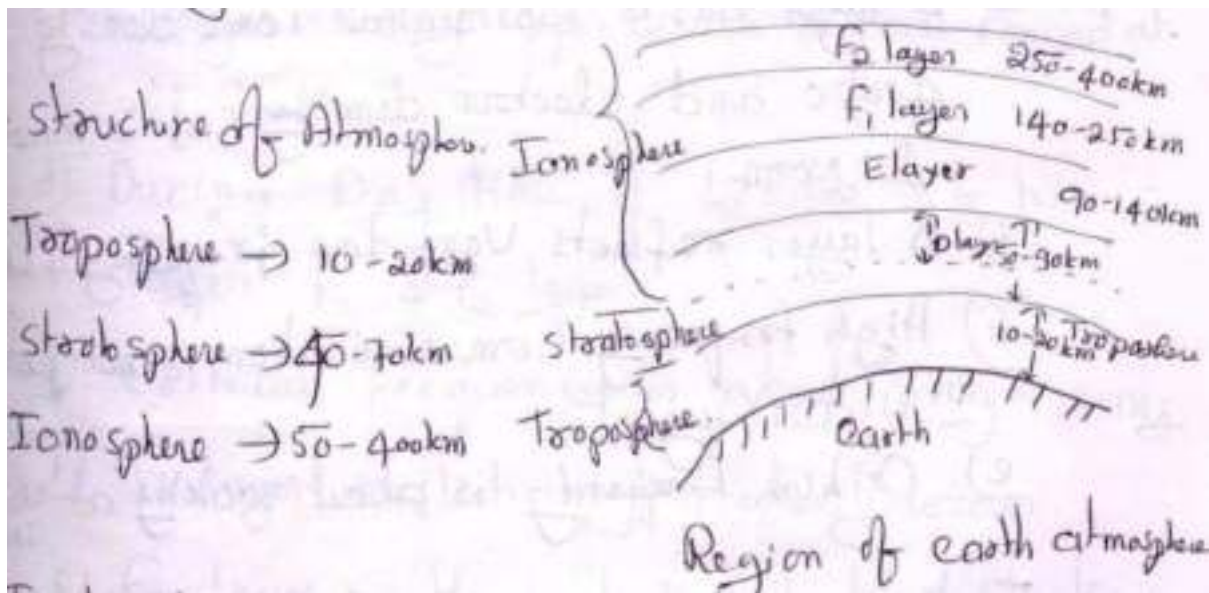 structure of Atmosphere.
Troposphere → 10-20km
Stratosphere → 40-70km
Ionosphere → 50-400km
Ionosphere
F2 layer 250-400km
F1 layer 140-250km
E layer
90-140km
D layer 50-90km
Stratosphere
10-20km Troposhere
Troposphere.
earth
Region of earth atmosphere